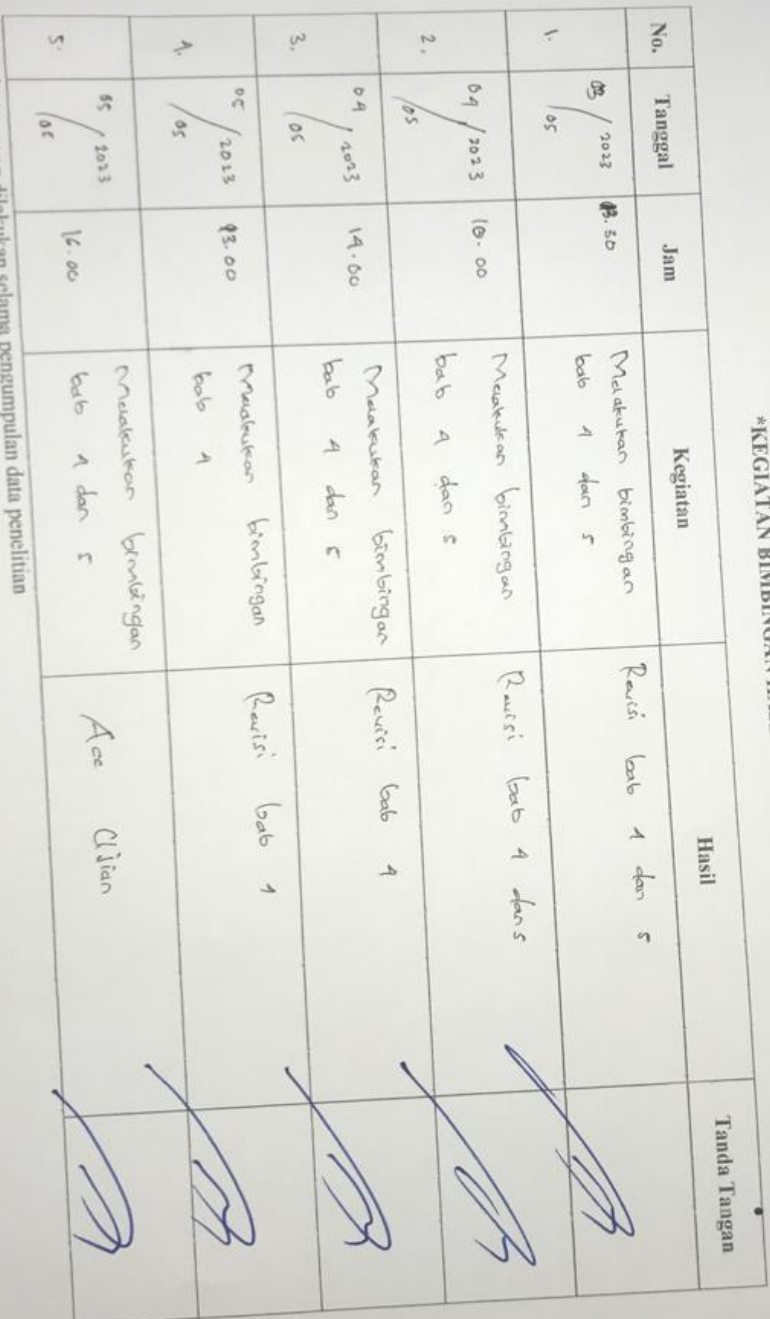 *KEGIATAN BIMBINGAN
No. Tanggal Jam Kegiatan Hasil Tanda Tangan
1. 03/05 2023 13.30 Melakukan bimbingan Revisi bab 4 dan 5
bab 4 dan 5
2. 04/05 2023 10.00 Melakukan bimbingan Revisi bab 4 dan 5
bab 4 dan 5
3. 04/05 2023 14.00 Melakukan bimbingan Revisi bab 4
bab 4 dan 5
4. 05/05 2023 13.00 Melakukan bimbingan Revisi bab 4
bab 4
5. 05/05 2023 16.00 Melakukan bimbingan Acc Ujian
bab 4 dan 5
dilakukan selama pengumpulan data penelitian